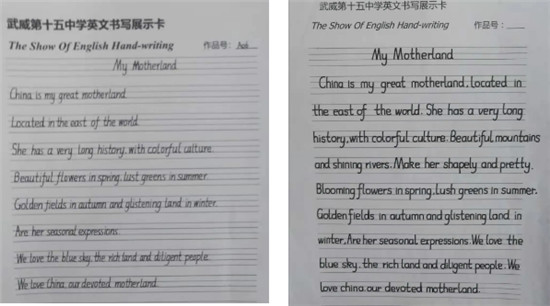 武威第十五中学英文书写展示卡
The Show Of English Hand-writing 作品号:
My Motherland
China is my great motherland.
Located in the east of the world.
She has a very long history, with colorful culture.
Beautiful flowers in spring, lust greens in summer.
Golden fields in autumn and glistening land in winter.
Are her seasonal expressions.
We love the blue sky, the rich land and diligent people.
We love China, our devoted motherland.
武威第十五中学英文书写展示卡
The Show Of English Hand-writing 作品号:
My Motherland
China is my great motherland. Located in
the east of the world. She has a very long
history, with colorful culture. Beautiful mountains
and shining rivers. Make her shapely and pretty.
Blooming flowers in spring, lush greens in summer.
Golden fields in autumn and glistening land in
winter, Are her seasonal expressions. We love the
blue sky, the rich land and diligent people. We
love china, our devoted motherland.